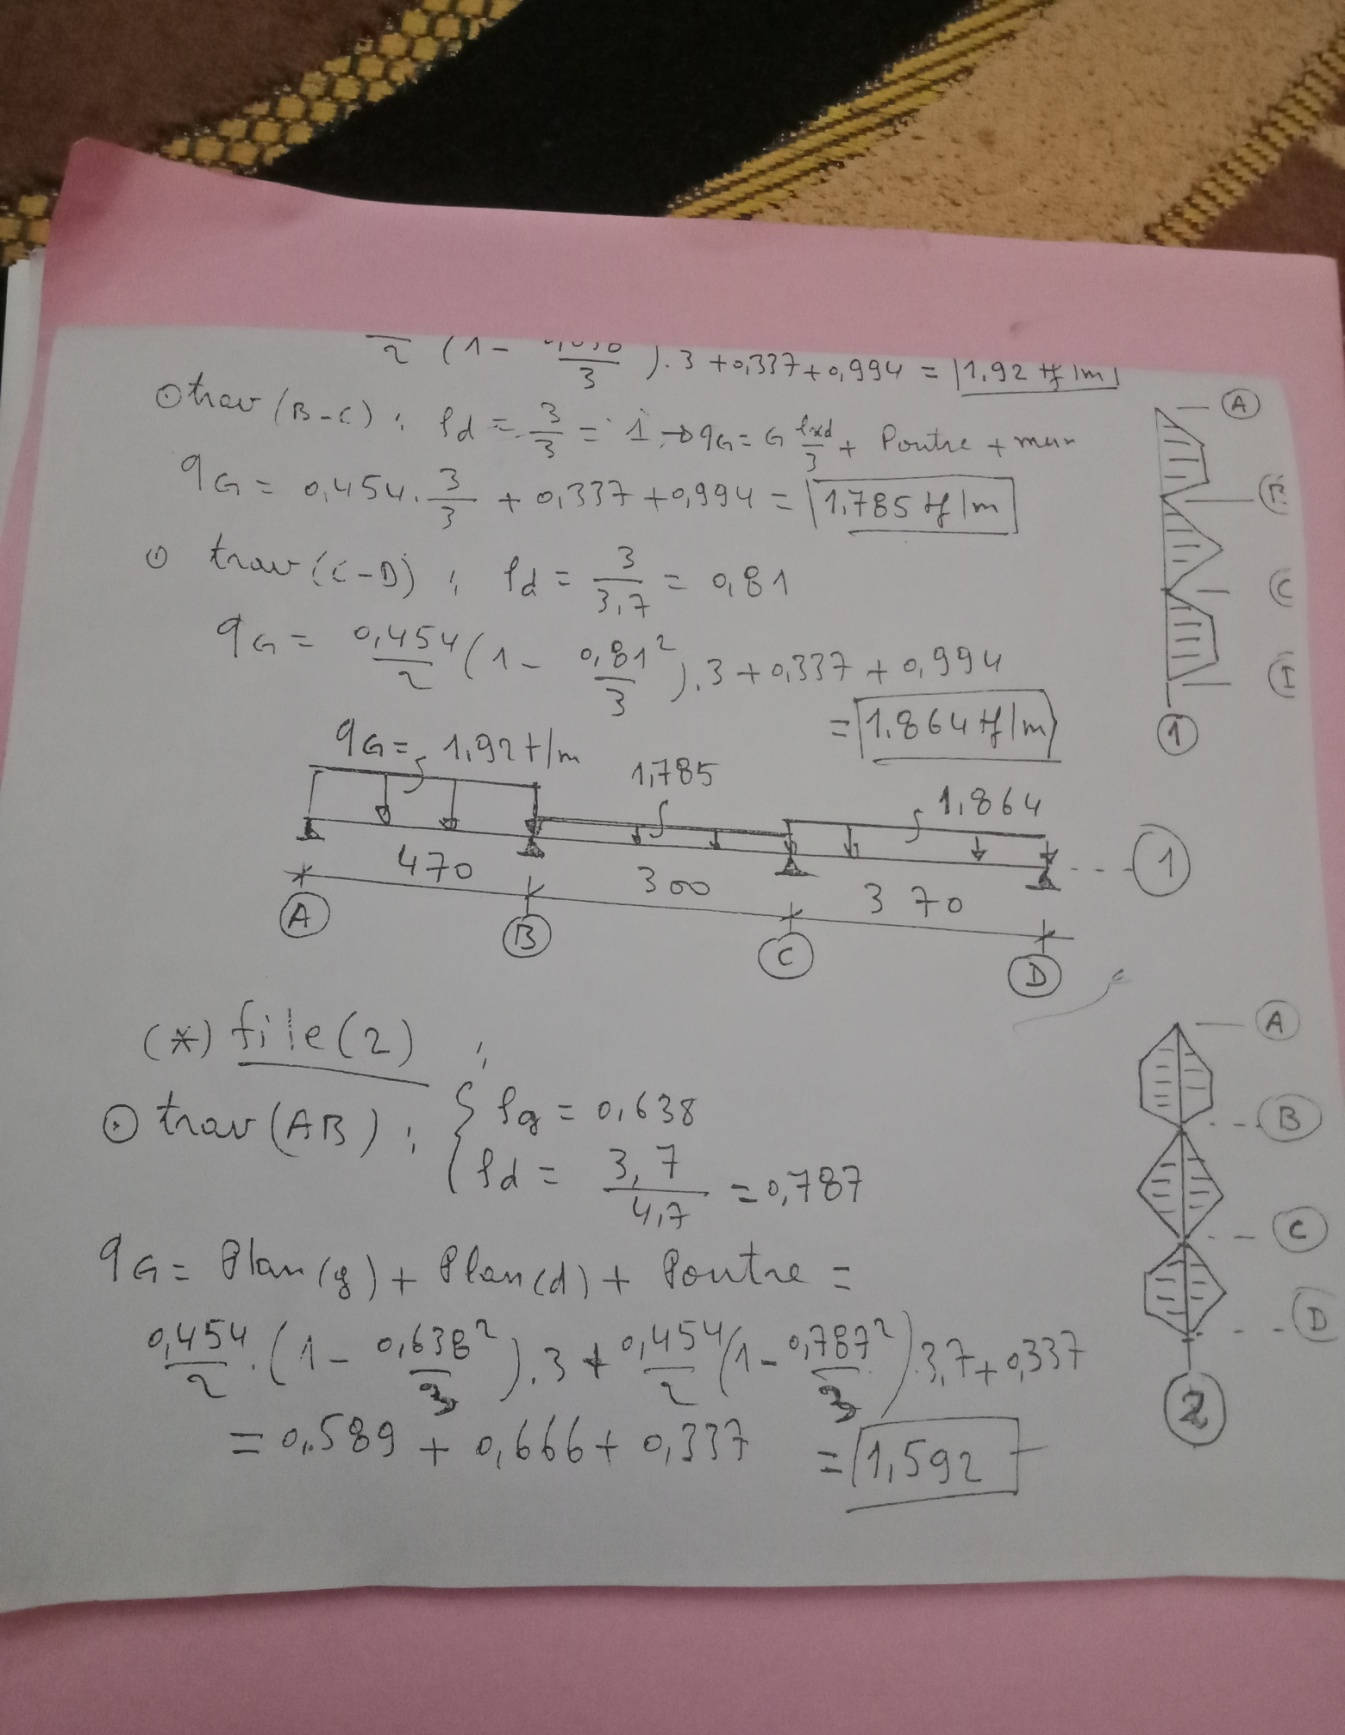 /2 (1 - /3 ).3 + 0,337 + 0,994 = 1,92 tf/m
⊙ trav (B-C) : ρd = 3/3 = 1 → qG = G lxd/3 + Poutre + mur
A
qG = 0,454 . 3/3 + 0,337 + 0,994 = 1,785 tf/m
B
⊙ trav (C-D) : ρd = 3/3,7 = 0,81
C
qG = 0,454/2 (1 - 0,81²/3 ).3 + 0,337 + 0,994
= 1,864 tf/m
1
qG = 1,92 t/m
1,785
1,864
470
300
370
1
A
B
C
D
(*) file (2) :
A
⊙ trav (AB) : { ρg = 0,638
B
ρd = 3,7/4,7 = 0,787
C
qG = Plan(g) + Plan(d) + Poutre =
D
0,454/2 . (1 - 0,638²/3 ).3 + 0,454/2 (1 - 0,787²/3 ) 3,7 + 0,337
2
= 0,589 + 0,666 + 0,337 = 1,592